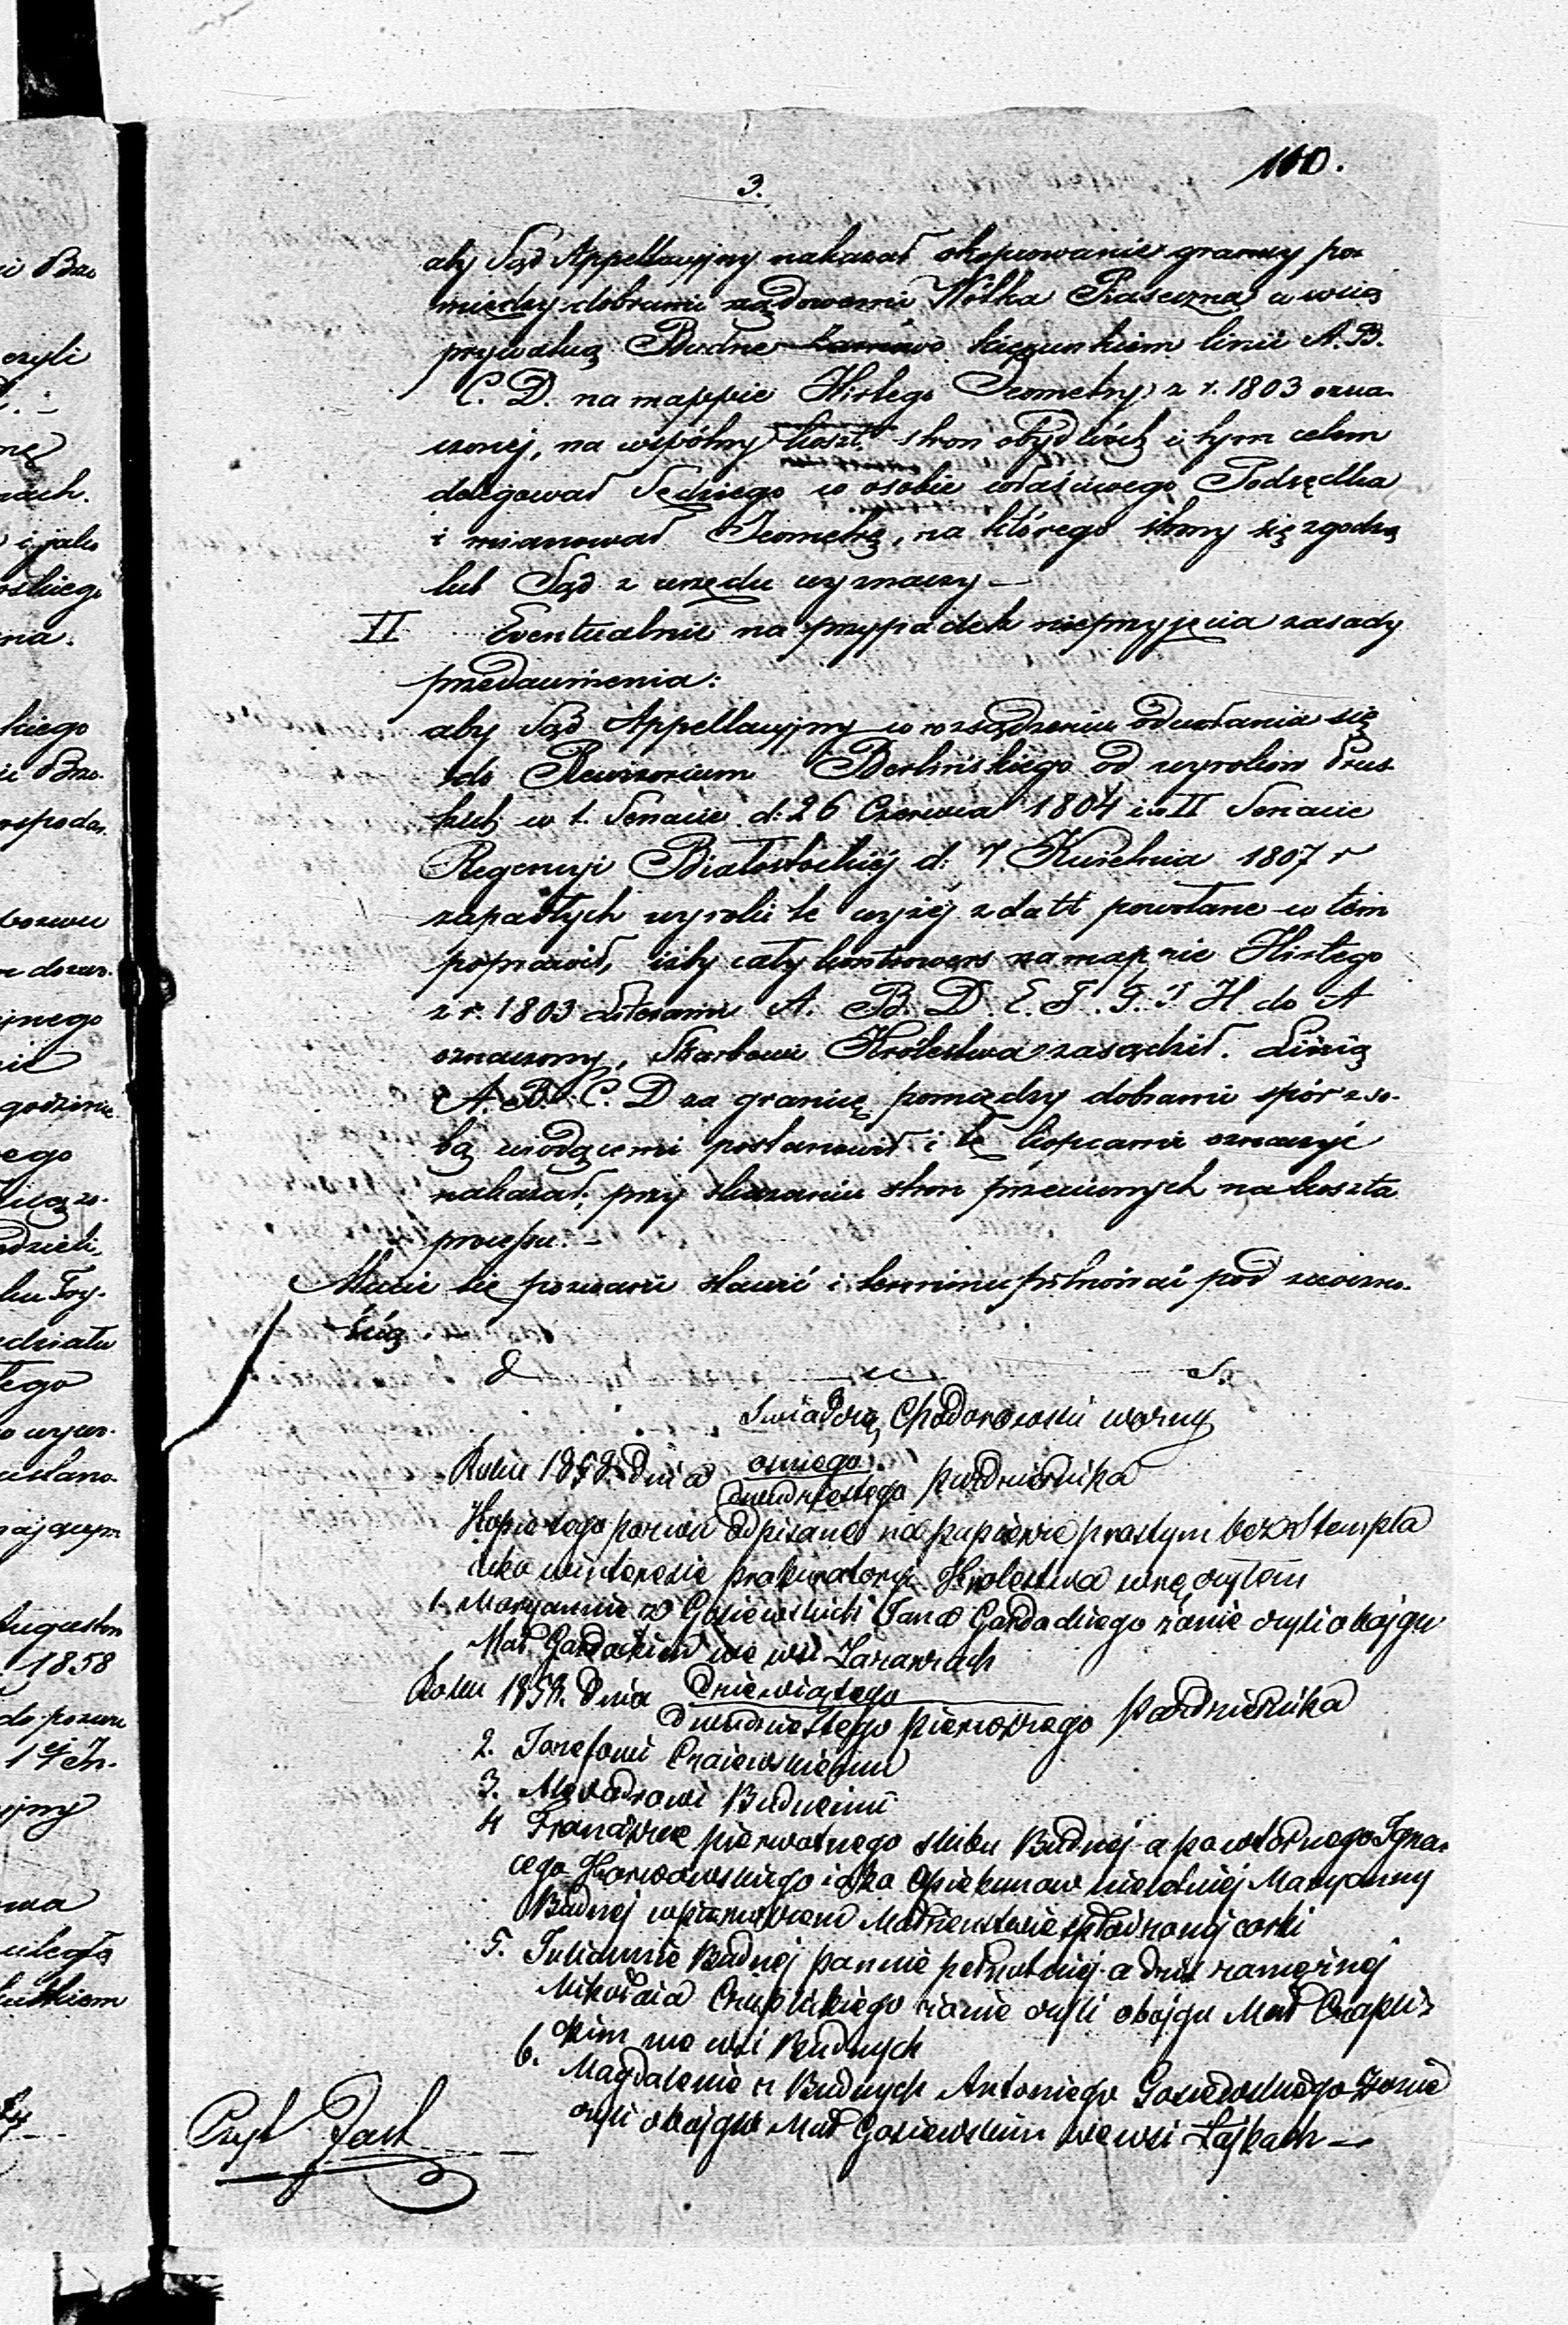 100.
3.
aby Sąd Appellacyjny nakazał okopcowanie granicy po-
między dobrami rządowemi Wólka Piaseczna a wsią
prywatną Budne kierunkiem linii A. B.
C. D. na mappie Hirlego Jeometry z r. 1803 ozna-
czonej, na wspólny koszt stron obydwóch i tym celem
delegował Sędziego w osobie właściwego Podsędka
i mianował Jeometrę, na którego strony się zgodzą
lub Sąd z urzędu wyznaczy –
II Eventualnie na przypadek nieprzyjęcia zasady
przedawnienia:
aby Sąd Appellacyjny w rozsądzeniu odwołania się
do Rewizorium Berlińskiego od wyroków Prus-
kich w 1. Senacie d: 26 Czerwca 1804 i w II Senacie
Regencyi Białostockiej d: 7 Kwietnia 1807 r
zapadłych wyroki te wyżej z datt powołane w tém
poprawił, iżby cały kontrowers na mappie Hirlego
z r. 1803 literami A. B. D. E. F. G. H do A
oznaczony, Skarbowi Królestwa zasądził. Linią
A. B. C. D za granicę pomiędzy dobrami spór z so-
bą wiodącemi postanowił i tę kopcami oznaczyć
nakazał, przy skazaniu stron przeciwnych na koszta
processu. –
Macie się pozwani stawić i terminu pilnować pod zaoczno-
ścią. –
Świadczę Chodorowski woźny
Roku 1858 dnia ośmego / dwudziestego października
Kopie tego pozwu odpisane na papierze prostym bez stempla
jako w interesie prokuratoryi Królestwa wręczyłem
1. Maryannie z Gosiewskich Jana Gardockiego żonie czyli obojgu
Mał Gardockim we wsi Zarazach
Roku 1858. dnia dziewiątego / dwudziestego pierwszego października
2. Józefowi
3. Budnemu
4 Franciszce pierwotnego ślubu Budnej a powtórnego Igna-
cego jako opiekunów nieletniej Maryanny
Budnej w pierwszem Małżeństwie spłodzonej córki
5. Juliannie Budnej pannie pełnoletniej a dziś zamężnej
Mikołaja Czaplickiego żonie czyli obojgu Mał Czaplic-
kim we wsi Budnych
6. Magdalenie z Budnych Antoniego Gosiewskiego żonie
czyli obojgu Mał Gosiewskim we wsi Łajkach –